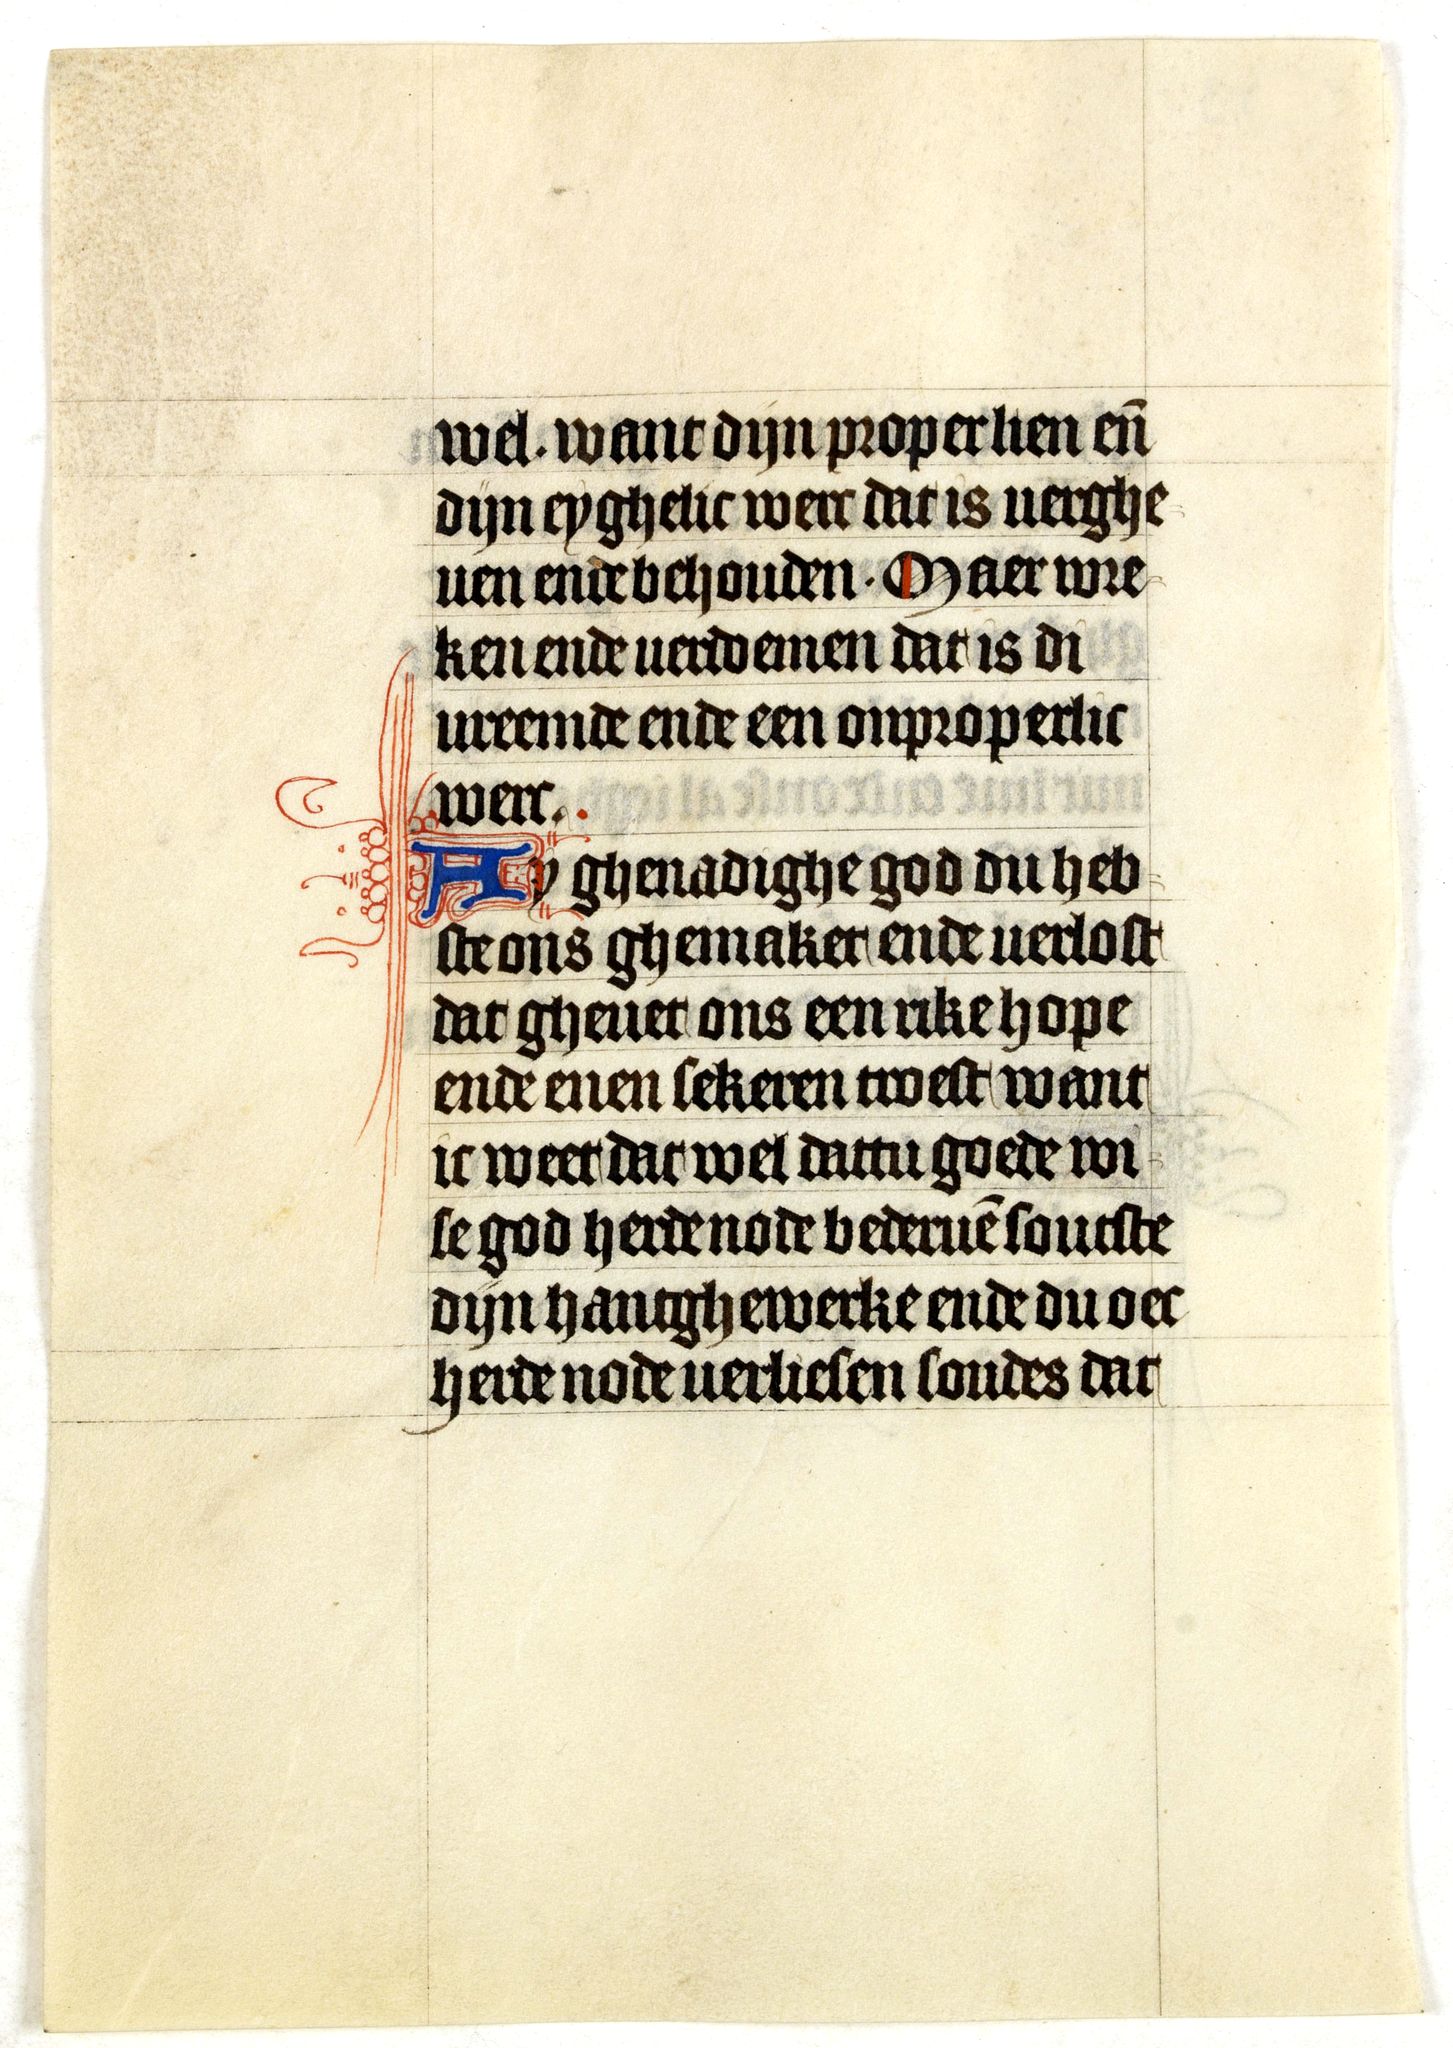 wel. want dijn properlien en̄
dijn eyghelic werc dat is uerghe-
uen ende behouden. Maer wre-
ken ende uerdoemen dat is di
ureemde ende een onproperlic
werc.
Ay ghenadighe god du heb-
ste ons ghemaket ende uerlost
dat gheuet ons een rike hope
ende enen sekeren troest want
ic weet dat wel dattu goede wi-
se god herde node bederuē soutste
dijn hantghewerke ende du oec
herde node uerliesen soudes dat